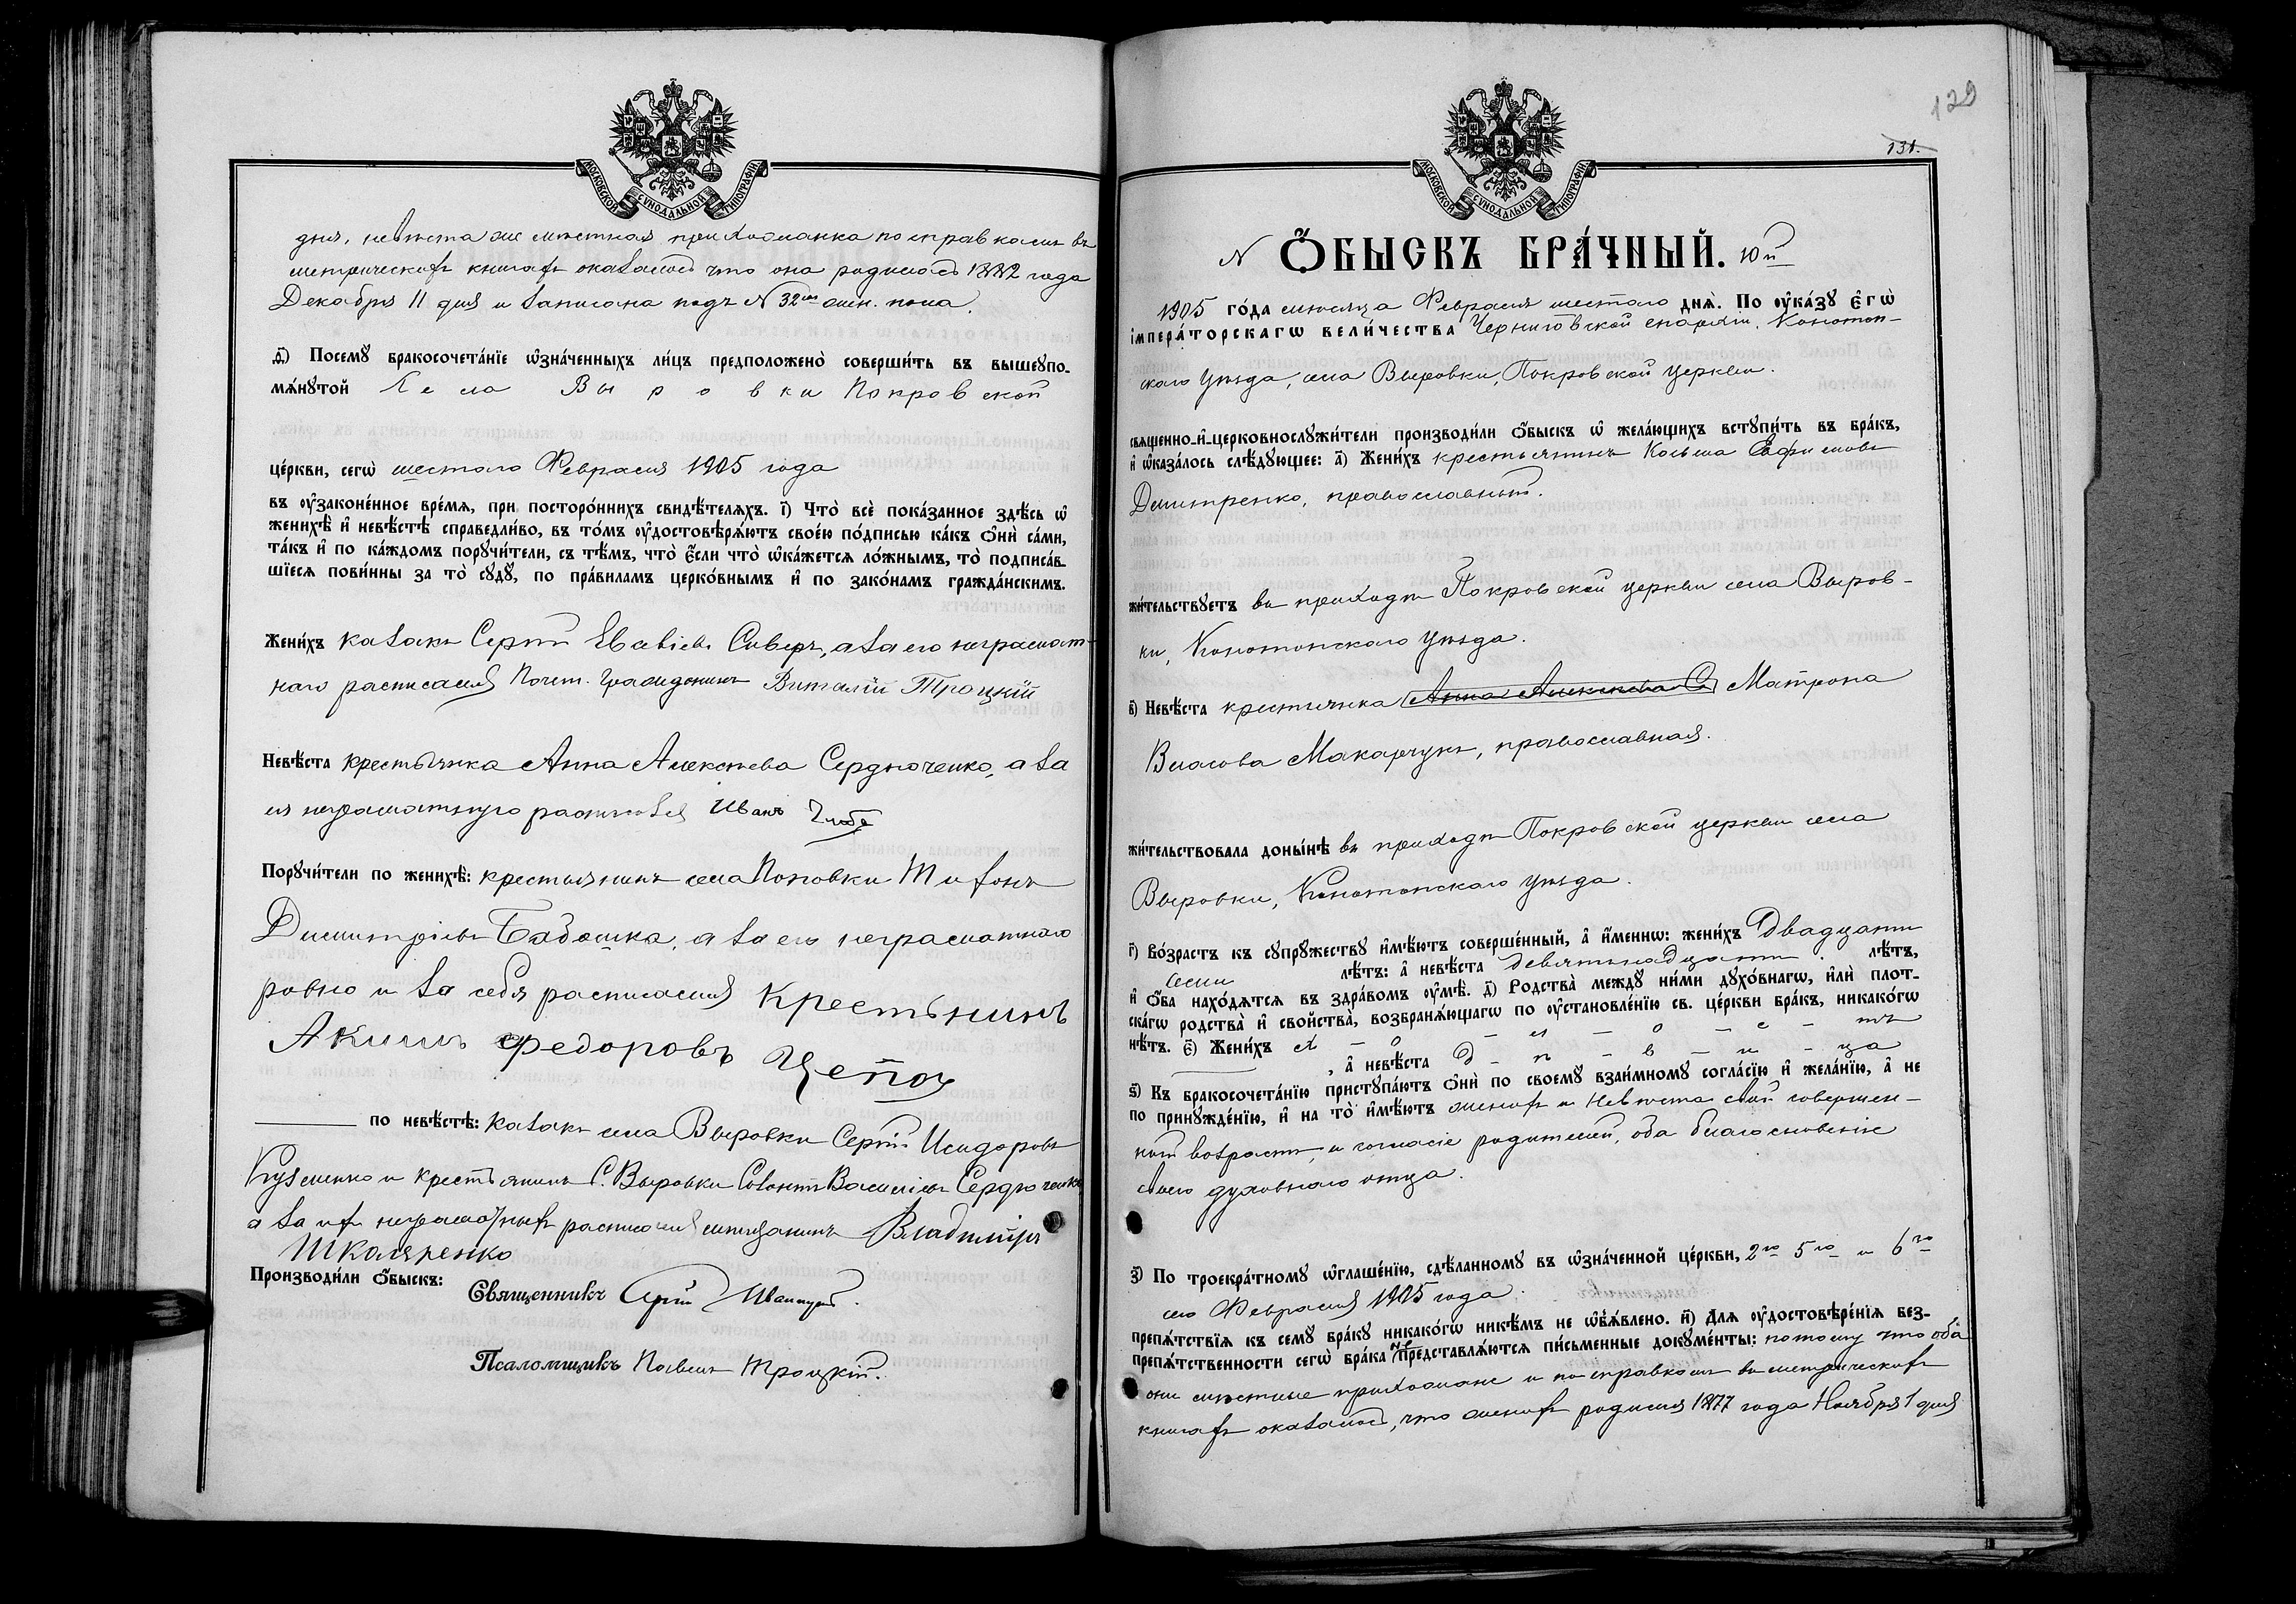 МОСКОВСКОЙ СУНОДАЛЬНОЙ ТИПОГРАФІИ
дня, невѣста же мѣстная прихожанка по справкамъ въ
метрическихъ книгахъ оказалось что она родилась 1882 года
Декабря 11 дня и записана подъ № 32мъ жен. пола.
ѳ҃) Посемꙋ бракосочета́нїе ѡ҆зна́ченныхъ ли́цъ предположено̀ соверши́ть въ вышеꙋпо-
мѧ́нꙋтой Села Выровки Покровской
це́ркви, сегѡ̀ шестого Февраля 1905 года
въ ᲂу҆законе́нное вре́мѧ, при посторо́ннихъ свидѣ́телѧхъ. і҃) Что̀ всѐ пока́занное здѣ́сь ѡ҆
женихѣ̀ и҆ невѣ́стѣ справедли́во, въ то́мъ ᲂу҆достовѣрѧ́ютъ свое́ю по́дписью ка́къ ѻ҆нѝ са́ми,
та́къ и҆ по ка́ждомъ порꙋчи́тели, съ тѣ́мъ, что̀ є҆́сли что̀ ѡ҆ка́жетсѧ ло́жнымъ, то̀ подписа́в-
шїесѧ пови́нны за то̀ сꙋдꙋ̀, по пра́виламъ церко́внымъ и҆ по зако́намъ гражда́нскимъ.
Жени́хъ казакъ Сергій Евсѣіевъ Сиверъ, а за его неграмот-
наго расписался Почет. Гражданинъ Виталій Троцкій
Невѣ́ста крестьянка Анна Алексѣева Сердюченко, а за
ея неграмотную расписался Иванъ
Порꙋчи́тели по женихѣ̀: крестьянинъ села Поповки Тихонъ
Димитріевъ Бабошка, а за его неграмотного
ровно и за себя расписался Крестьнинъ
Акимъ Федоровъ Цепа
по невѣ́стѣ: казакъ села Выровки Сергій Исидоровъ
Кузменко и крестьянинъ С. Выровки Созонтъ Василіевъ Сердюченко
а за ихъ неграмотныхъ расписался мѣщанинъ Владиміръ
Шкляренко
Производи́ли ѻ҆́быскъ: Священникъ Сергій Иваницкій.
Псаломщикъ Павелъ Троцкій.
129
131.
МОСКОВСКОЙ СУНОДАЛЬНОЙ ТИПОГРАФІИ
№ Ѻ҆́БЫСКЪ БРА́ЧНЫЙ. 10й
1905 го́да мѣсяца Февраля шестого днѧ̀. По ᲂу҆ка́зꙋ є҆гѡ̀
і҆мпера́торскагѡ вели́чества Черниговской епархіи, Конотоп-
скаго уѣзда, села Выровки, Покровской церкви.
свѧщенно-и҆-церковнослꙋжи́тели производи́ли ѻ҆́быскъ ѡ҆ жела́ющихъ встꙋпи́ть въ бра́къ,
и҆ ѡ҆каза́лось слѣ́дꙋющее: а҃) Жени́хъ крестьянинъ Косьма Ефимовъ
Дмитренко, православный.
жи́тельствꙋетъ въ приходѣ Покровской церкви села Выров-
ки, Конотопскаго уѣзда.
в҃) Невѣ́ста крестьянка Анна Алексѣева С Матрона
Власова Макарчукъ, православная.
жи́тельствовала доны́нѣ въ приходѣ Покровской церкви села
Выровки, Конотопскаго уѣзда.
г҃) Во́зрастъ къ сꙋпрꙋ́жествꙋ и҆мѣ́ютъ соверше́нный, а҆ и҆́меннѡ: жени́хъ Двадцати
семи лѣ́тъ: а҆ невѣ́ста девятнадцати. лѣ́тъ,
и҆ ѻ҆́ба нахо́дѧтсѧ въ здра́вомъ ᲂу҆мѣ̀. д҃) Родства̀ междꙋ ни́ми дꙋхо́внагѡ, и҆лѝ плот-
ска́гѡ родства̀ и҆ сво́йства̀, возбранѧ́ющагѡ по ᲂу҆становле́нїю св. це́ркви бра́къ, никако́гѡ
нѣ́тъ. є҃) Жени́хъ х – о – л – о – с – тъ
, а҆ невѣ́ста д – ѣ – в – и – ца
ѕ҃) Къ бракосочета́нїю пристꙋпа́ютъ ѻ҆нѝ по своемꙋ̀ взаи́мномꙋ согла́сїю и҆ жела́нїю, а҆ не
по принꙋжде́нїю, и҆ на то̀ и҆мѣ́ютъ женихъ и невѣста свой совершен-
ный возрастъ, и согласіе родителей, оба благословеніе
своего духовнаго отца.
з҃) По троекра́тномꙋ ѡ҆глаше́нїю, сдѣ́ланномꙋ въ ѡ҆зна́ченной це́ркви, 2го 5го и 6го
сего Февраля 1905 года.
препѧ́тствїѧ къ семꙋ̀ бра́кꙋ никако́гѡ никѣ́мъ не ѡ҆бъѧ́влено. и҃) Длѧ ᲂу҆достовѣре́нїѧ без-
препѧ́тственности сегѡ̀ бра́ка не представлѧ́ютсѧ пи́сьменные докꙋме́нты: потому что оба
они мѣстные прихожане и по справкамъ въ метрическихъ
книгахъ оказалось, что женихъ родился 1877 года Ноября 1 дня